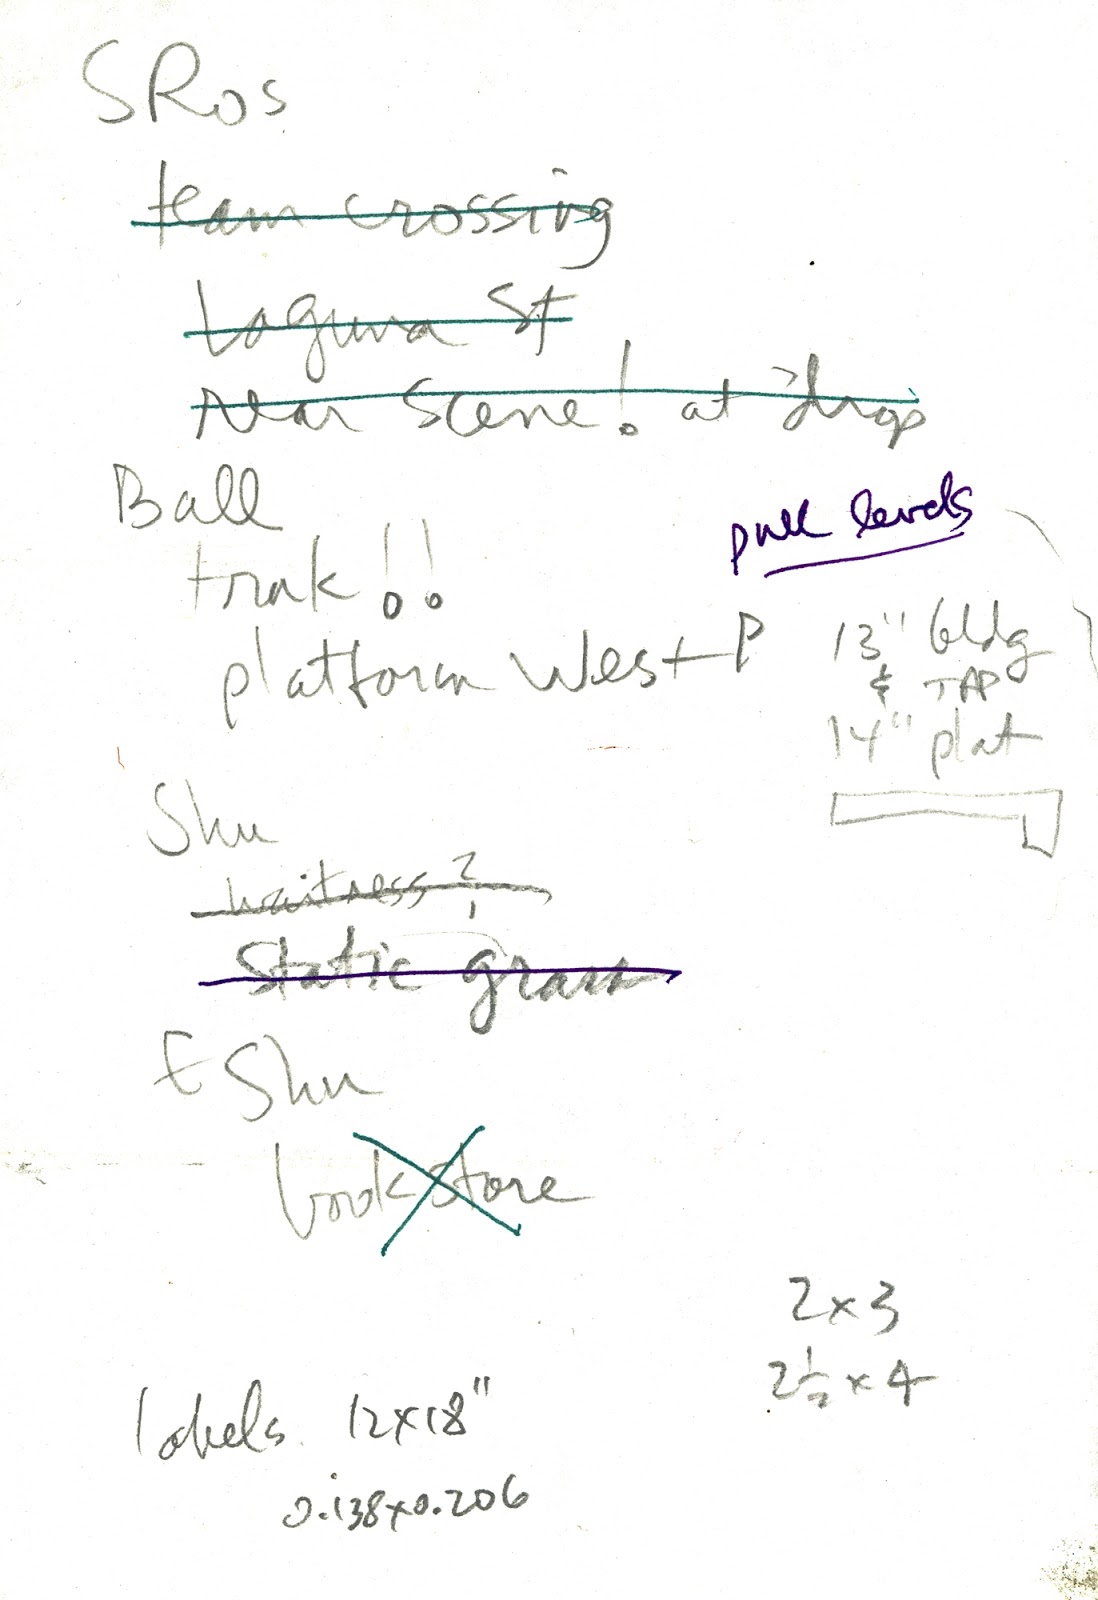 SRos
team crossing
Laguna St
near Scene! at drop
Ball
trak!!
platform West P
pull levels
13" bldg
& TAP
14" plat
Shu
waitress 2
1
Static grass
E Shu
bookstore
2x3
2½ x 4
labels 12x18"
0.138x0.206